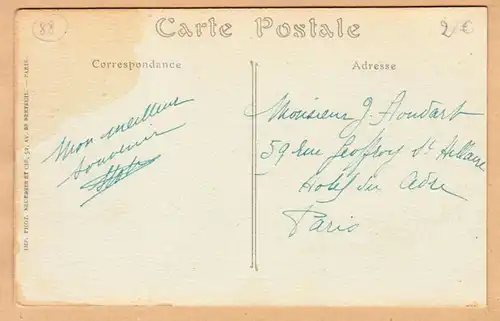 88
Carte Postale
2/€
Correspondance
Adresse
Mon meilleur
souvenir
Monsieur J. Houdart
59 rue Geoffroy St Hilaire
Hotel du
Paris
IMP. PHOT. NEURDEIN ET CIE, 52, AV. DE BRETEUIL. — PARIS.